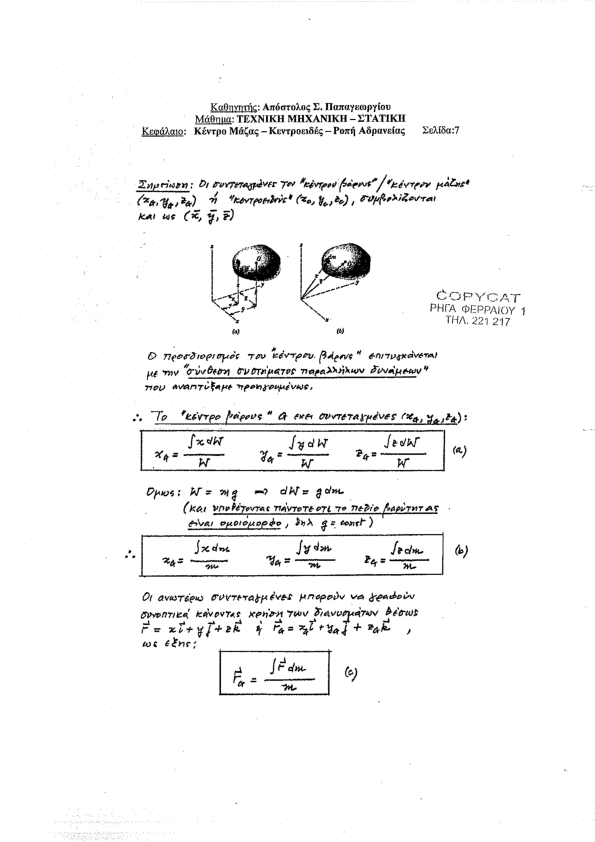 Καθηγητής: Απόστολος Σ. Παπαγεωργίου
Μάθημα: ΤΕΧΝΙΚΗ ΜΗΧΑΝΙΚΗ – ΣΤΑΤΙΚΗ
Κεφάλαιο: Κέντρο Μάζας – Κεντροειδές – Ροπή Αδρανείας Σελίδα:7
Σημείωση: Οι συντεταγμένες του "κέντρου βάρους" / "κέντρου μάζης"
(x_G, y_G, z_G) ή "κεντροειδούς" (x_c, y_c, z_c), συμβολίζονται
και ως (x̄, ȳ, z̄)
(a) (b)
COPYCAT
ΡΗΓΑ ΦΕΡΡΑΙΟΥ 1
ΤΗΛ. 221 217
Ο προσδιορισμός του "κέντρου βάρους" επιτυγχάνεται
με την "σύνθεση συστήματος παραλλήλων δυνάμεων"
που αναπτύξαμε προηγουμένως.
∴ Το "κέντρο βάρους" G έχει συντεταγμένες (x_G, y_G, z_G):
x_G = ∫x dW / W y_G = ∫y dW / W z_G = ∫z dW / W (a)
Όμως: W = mg ⇒ dW = g dm
(και υποθέτοντας πάντοτε ότι το πεδίο βαρύτητας
είναι ομοιόμορφο, δηλ g = const)
∴ x_G = ∫x dm / m y_G = ∫y dm / m z_G = ∫z dm / m (b)
Οι ανωτέρω συντεταγμένες μπορούν να γραφούν
συνοπτικά κάνοντας χρήση των διανυσμάτων θέσως
r⃗ = x i⃗ + y j⃗ + z k⃗ ή r⃗_G = x_G i⃗ + y_G j⃗ + z_G k⃗ ,
ως εξής:
r⃗_G = ∫r⃗ dm / m (c)